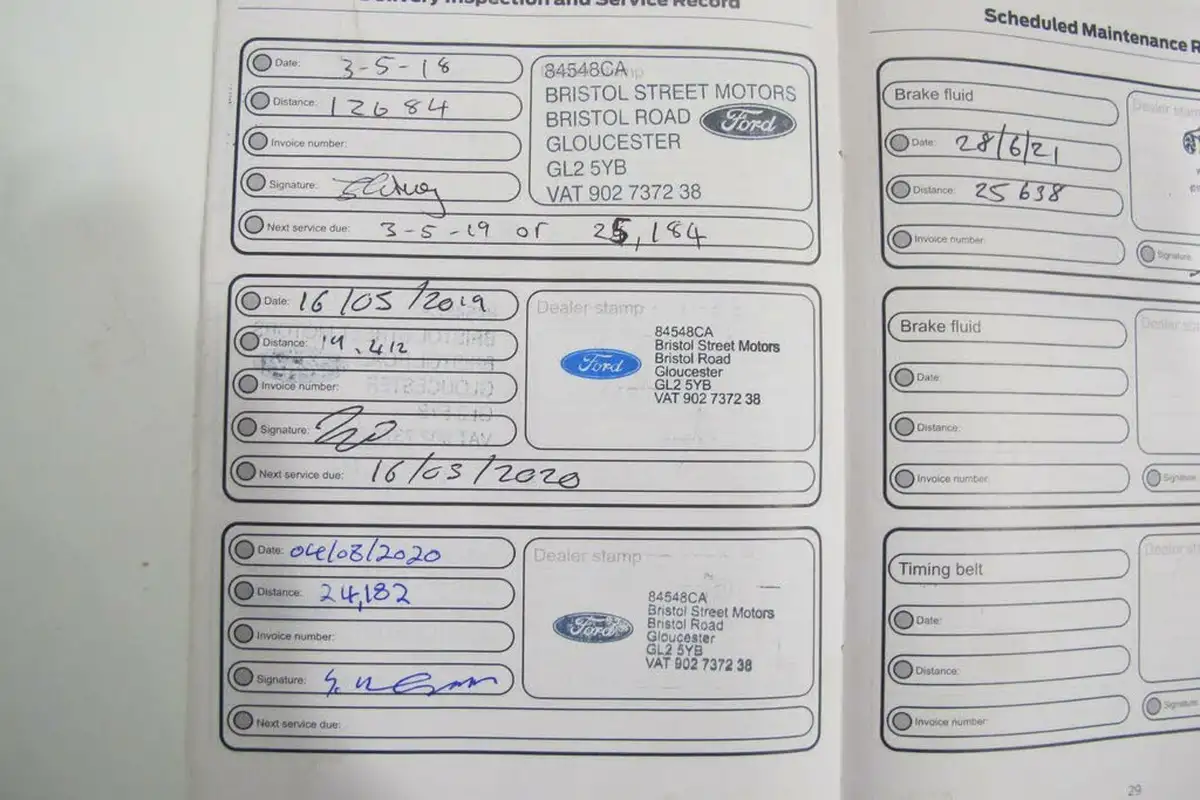 Delivery Inspection and Service Record
Date: 3-5-18
Distance: 12684
Invoice number:
Signature:
Next service due: 3-5-19 or 25,184
84548CA
BRISTOL STREET MOTORS
BRISTOL ROAD
Ford
GLOUCESTER
GL2 5YB
VAT 902 7372 38
Date: 16/05/2019
Distance: 19.412
Invoice number:
Signature:
Next service due: 16/05/2020
Dealer stamp
Ford
84548CA
Bristol Street Motors
Bristol Road
Gloucester
GL2 5YB
VAT 902 7372 38
Date: 04/08/2020
Distance: 24,182
Invoice number:
Signature:
Next service due:
Dealer stamp
Ford
84548CA
Bristol Street Motors
Bristol Road
Gloucester
GL2 5YB
VAT 902 7372 38
Scheduled Maintenance R
Brake fluid
Date: 28/6/21
Distance: 25638
Invoice number:
Dealer stam
Signature:
Brake fluid
Date:
Distance:
Invoice number:
Dealer sta
Signature:
Timing belt
Date:
Distance:
Invoice number:
Dealer st
Signature:
29